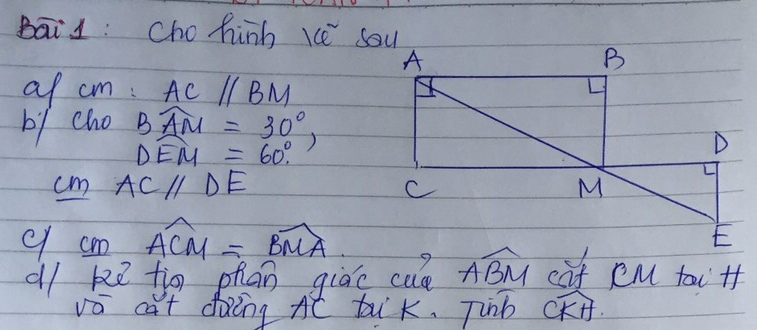 Bài 1 : Cho hình vẽ sau
A B
a/ cm : AC // BM
b/ Cho BÂM = 30°,
DÊM = 60°.
D
cm AC // DE
C M
E
c/ cm ACM = BMA.
d/ kẻ tia phân giác của ABM cắt CM tại H
và cắt đường AC tại K. Tính CKH.